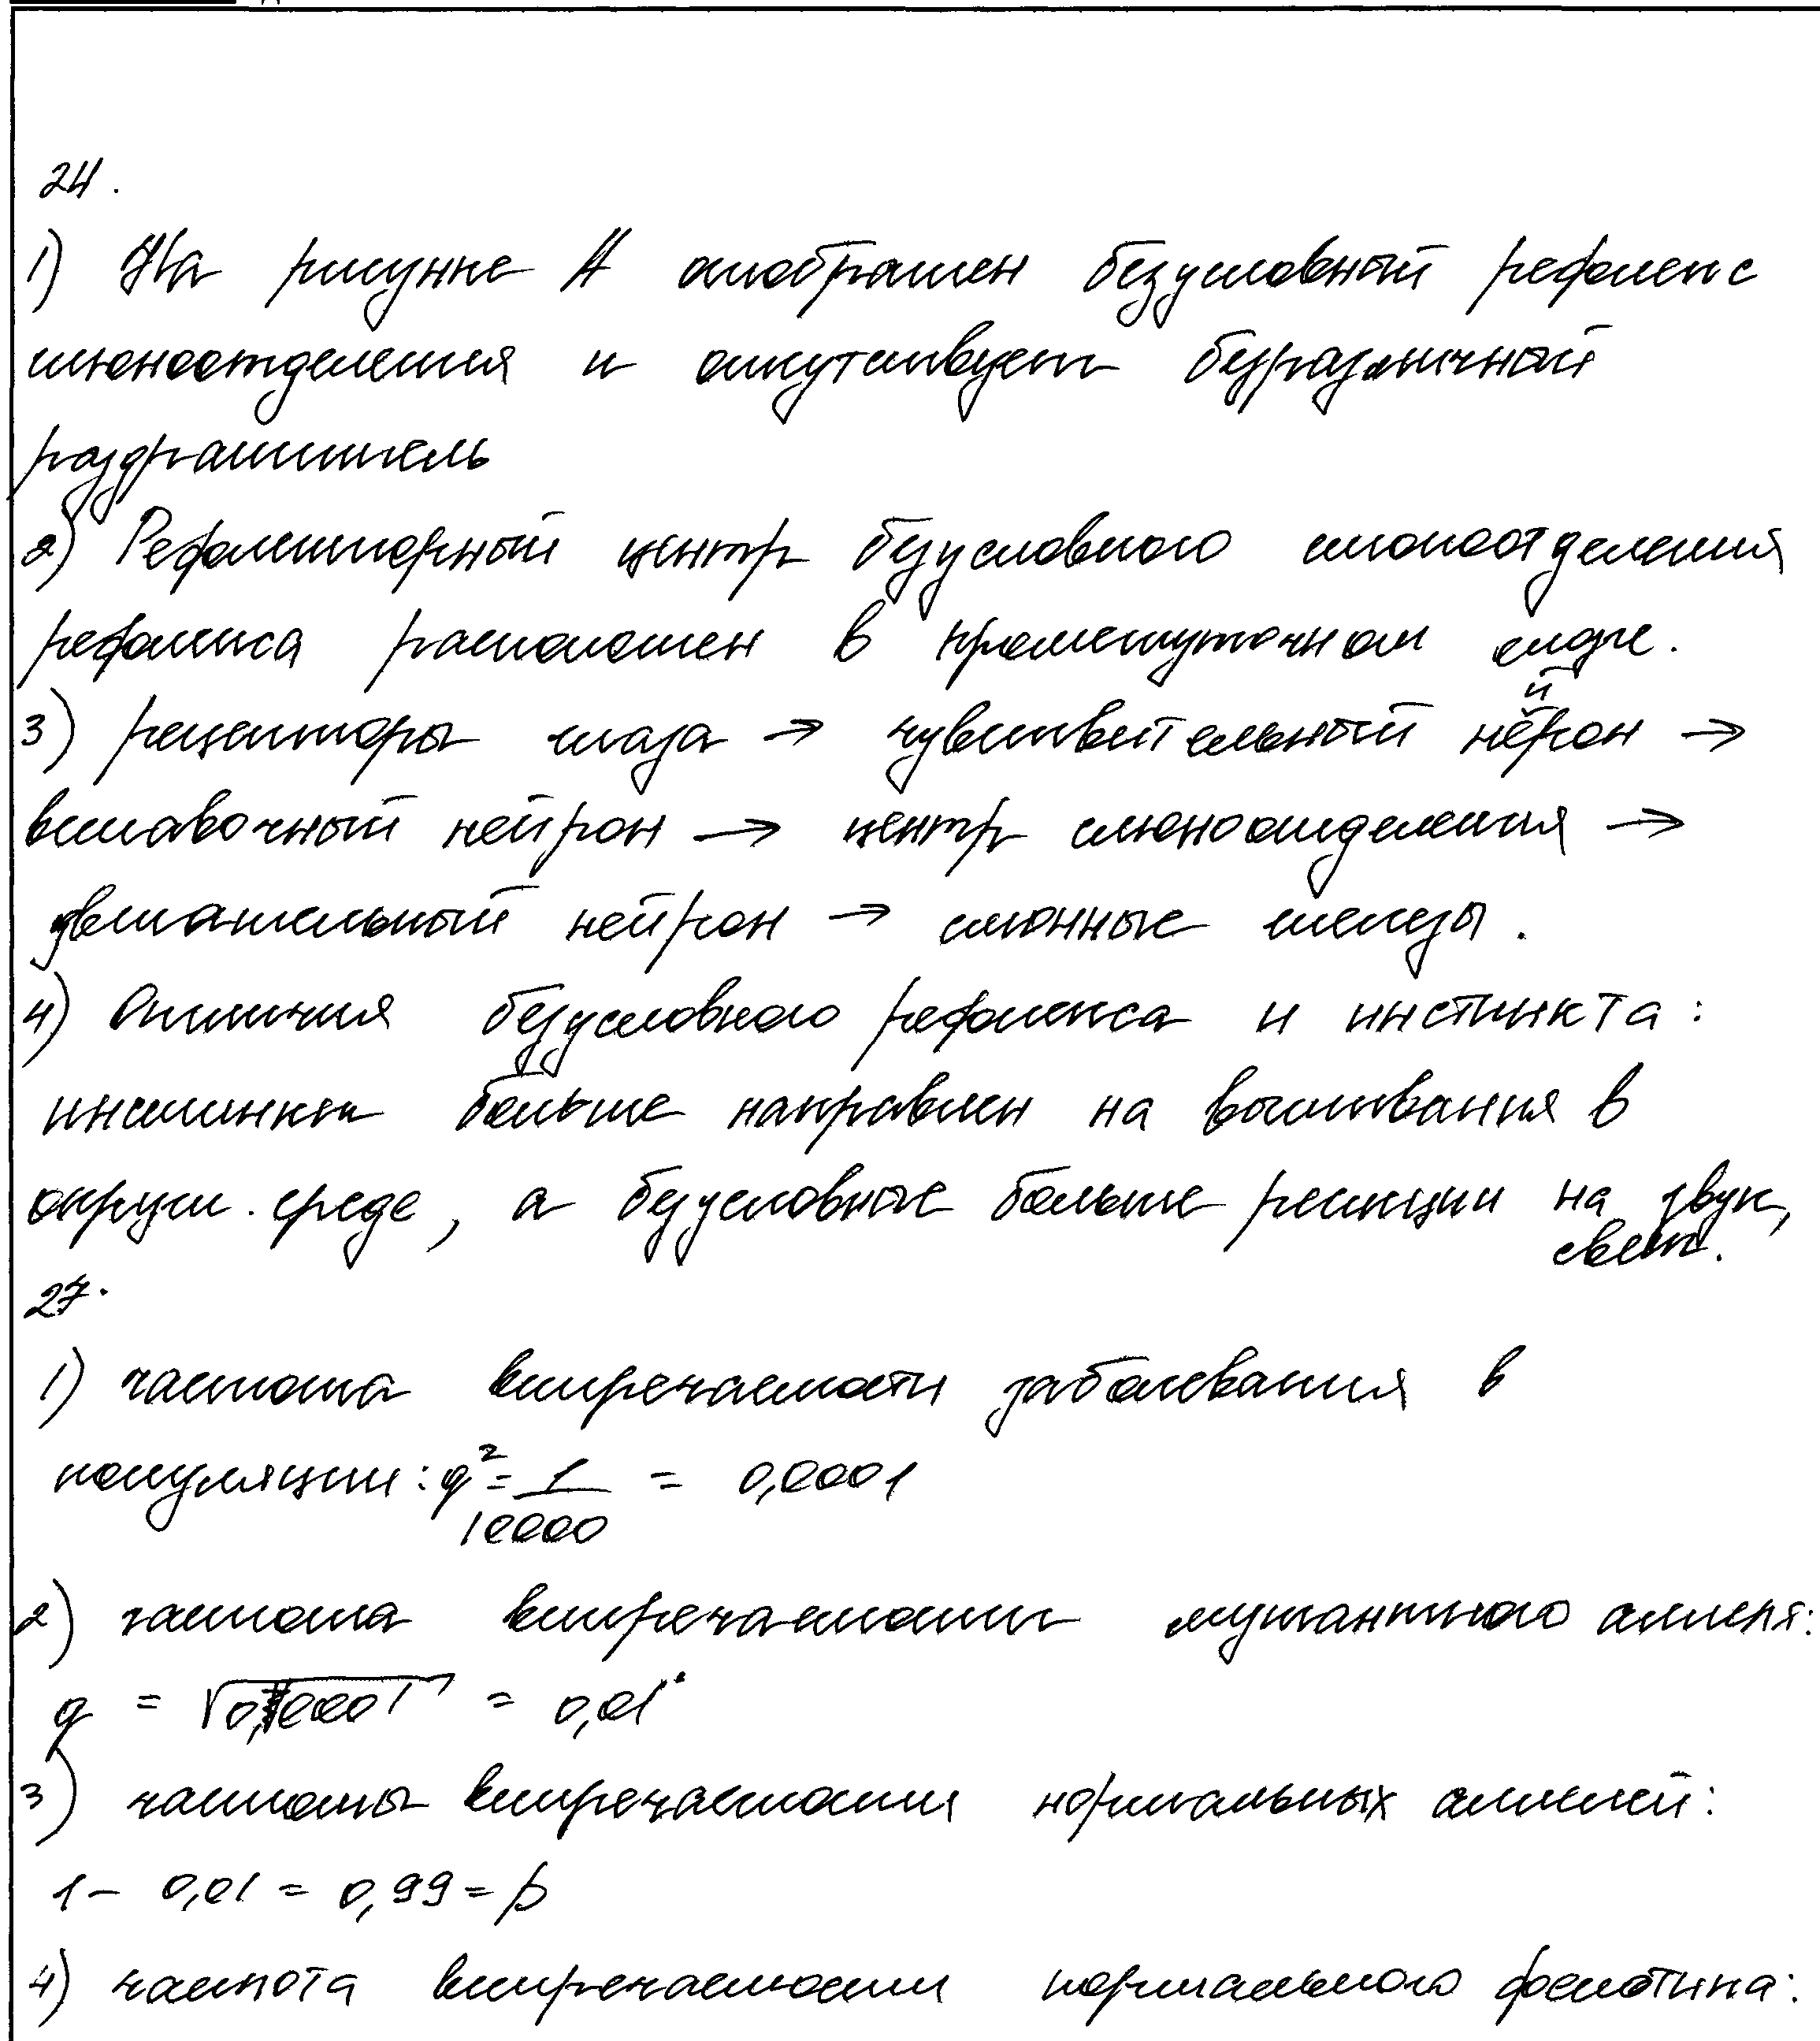 24.
1) На рисунке А отображен безусловный рефлекс
слюноотделения и отсутствует безразличный
раздражитель
2) Рефлекторный центр безусловного слюноотделения
рефлекса расположен в промежуточном мозге.
3) рецепторы глаза → чувствительный нейрон →
вставочный нейрон → центр слюноотделения →
двигательный нейрон → слюнные железы.
4) Отличия безусловного рефлекса и инстинкта:
инстинкт больше направлен на выживания в
окруж. среде, а безусловные больше реакции на звук,
свет.
27.
1) частота встречаемости заболевания в
популяции: q² = 1/10000 = 0,0001
2) частота встречаемости мутантного аллеля:
q = √0,0001 = 0,01
3) частоты встречаемости нормальных аллелей:
1 - 0,01 = 0,99 = p
4) частота встречаемости нормального фенотипа: